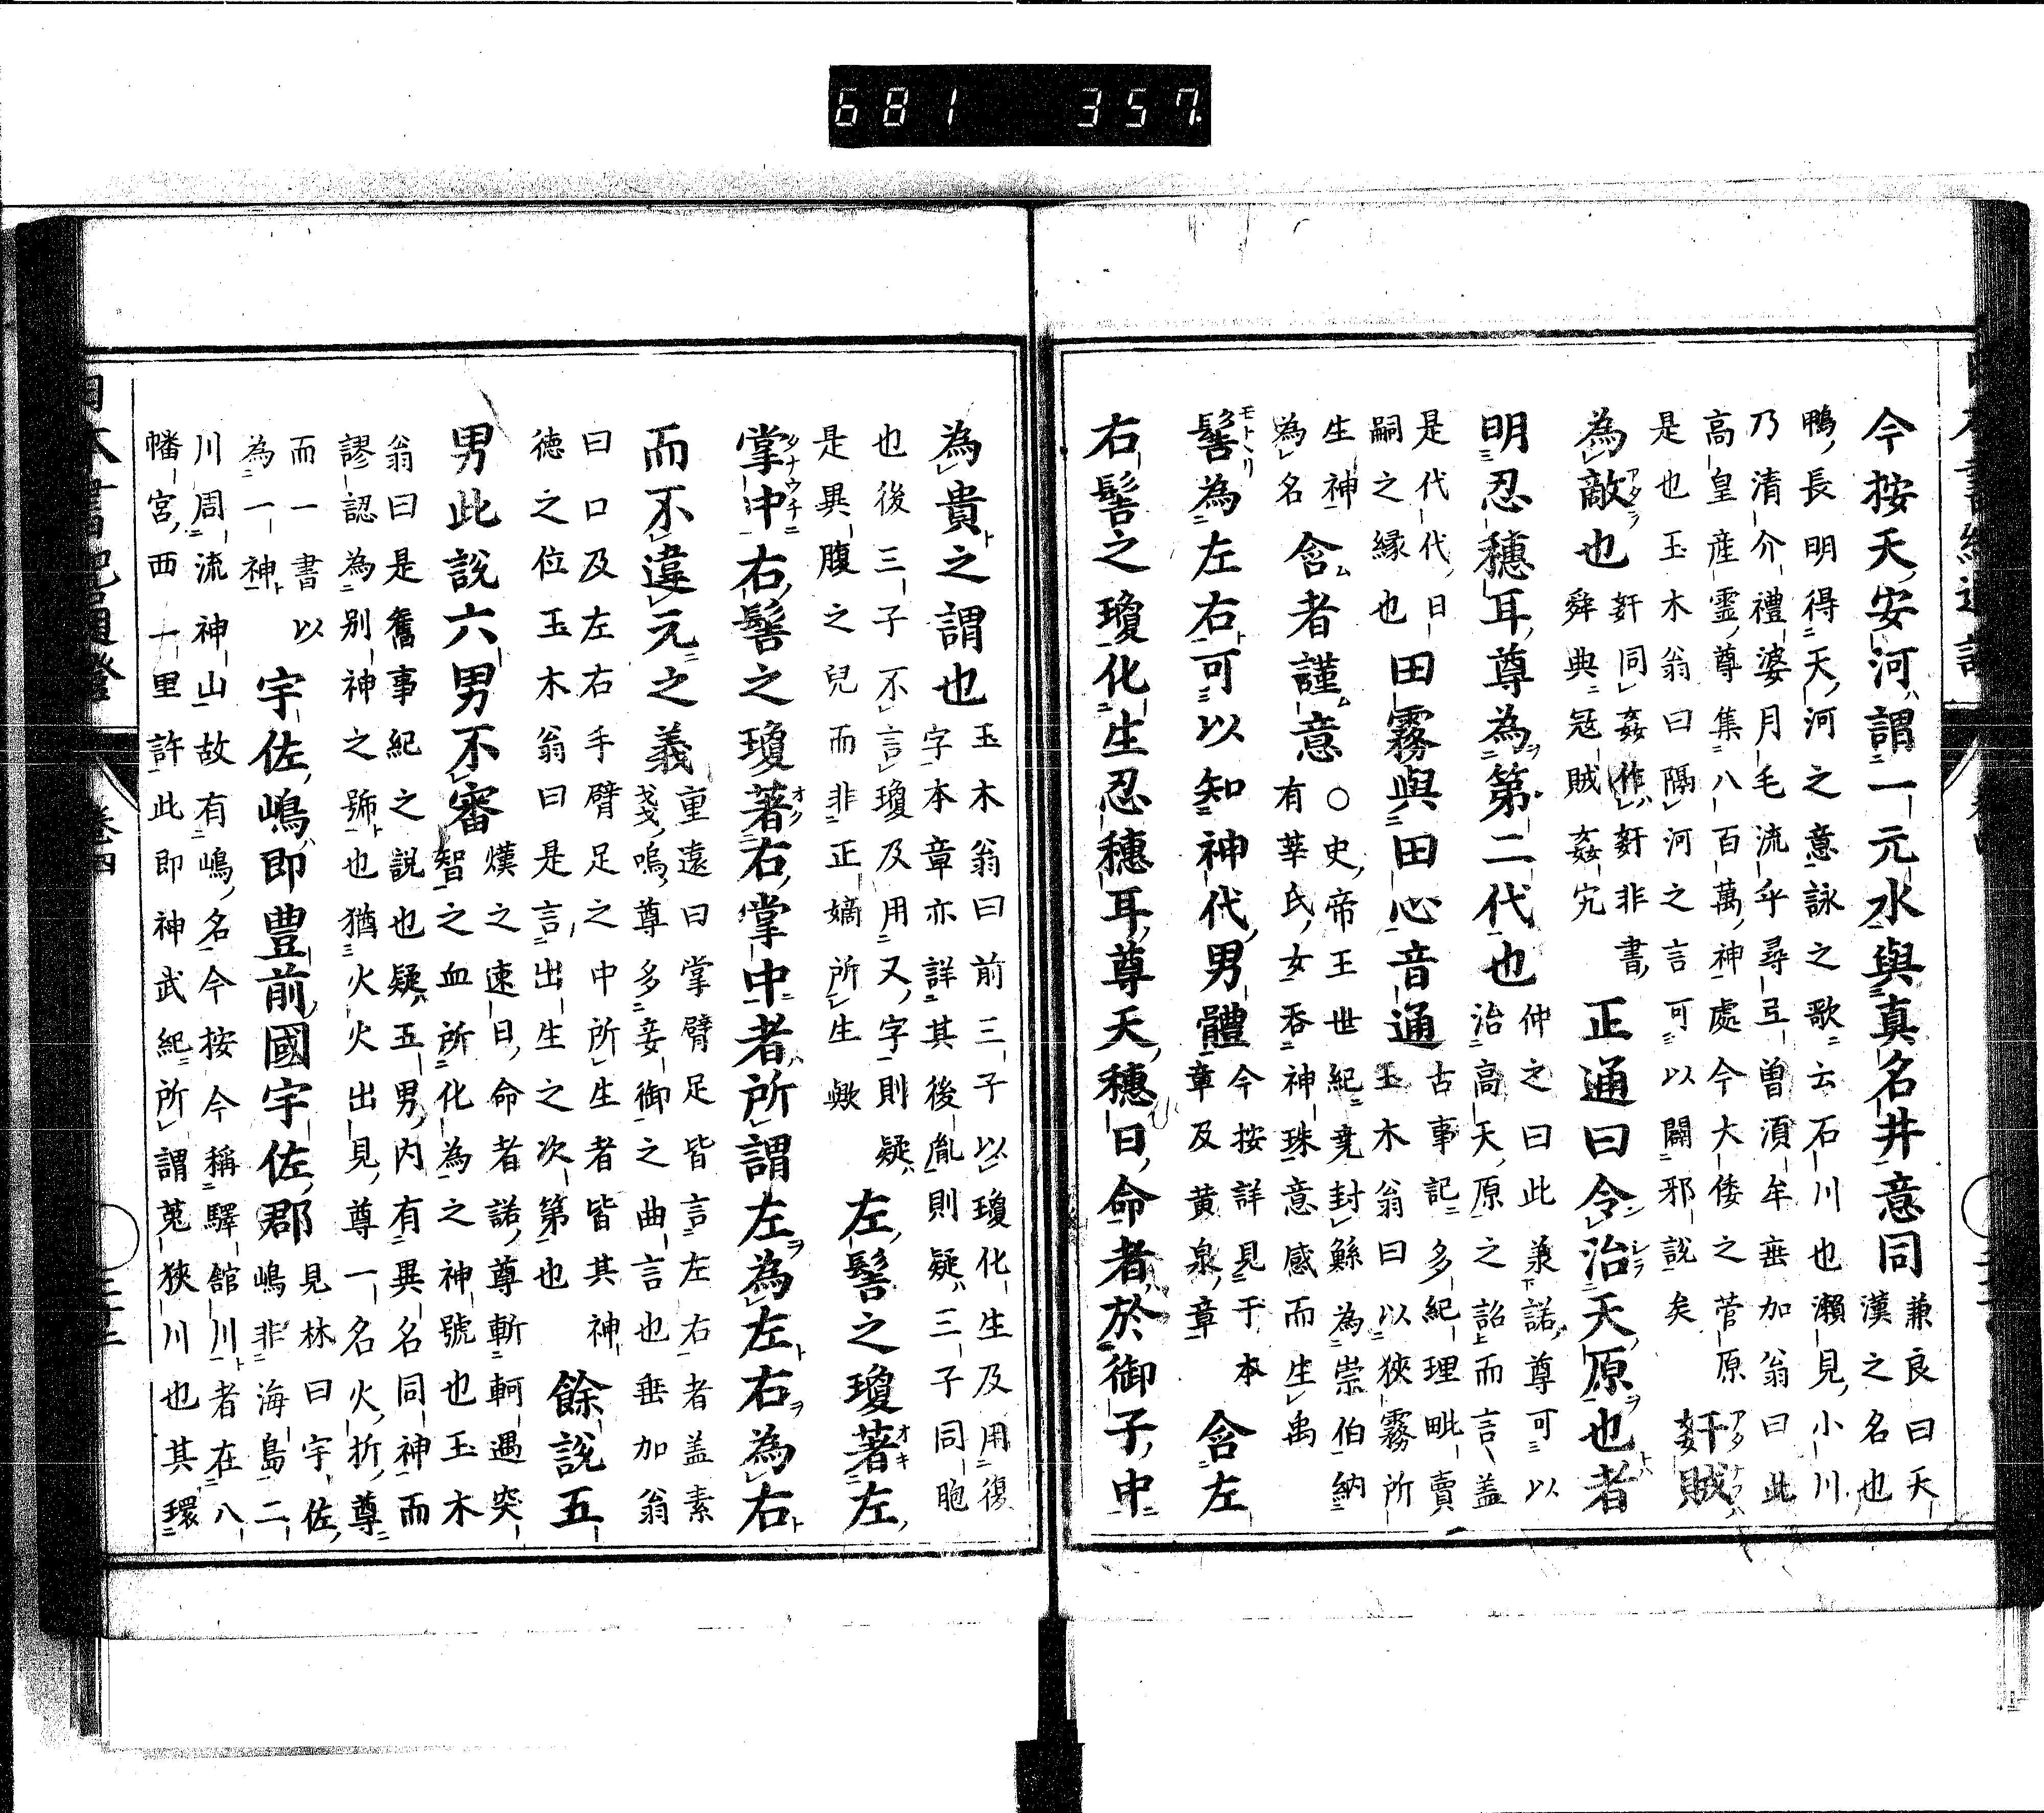 今按天安河謂一元水與真名井意同
兼良曰天
漢之名也
鴨長明得天河之意詠之歌云石川也瀬見小川
乃清介禮婆月毛流乎尋弖曽湏牟垂加翁曰此
高皇産霊尊集八百萬神處今大倭之菅原
是也玉木翁曰隔河之言可以闢邪説矣
奸賊
為敵也
奸同姦作奸非書
舜典冠賊姦宄
正通曰令治天原也者
明忍穂耳尊為第二代也
仲之曰此兼諾尊可以
治高天原之詔而言蓋
是代代日
嗣之縁也
田霧與田心音通
古事記多紀理毗賣
玉木翁曰以狹霧所
生神
為名
含者謹意
○史帝王世紀堯封鯀為崇伯納
有莘氏女吞神珠意感而生禹
髻為左右可以知神代男體
今按詳見于本
章及黄泉章
含左
右髻之瓊化生忍穂耳尊天穂日命者於御子中
為貴之謂也
玉木翁曰前三子以瓊化生及用復
字本章亦詳其後胤則疑三子同胞
也後三子不言瓊及用又字則疑
是異腹之兒而非正嫡所生歟
左髻之瓊著左
掌中右髻之瓊著右掌中者所謂左為左右為右
而不違元之義
重遠曰掌臂足皆言左右者盖素
戔嗚尊多妾御之曲言也垂加翁
曰口及左右手臂足之中所生者皆其神
徳之位玉木翁曰是言出生之次第也
餘説五
男此説六男不審
熯之速日命者諾尊斬軻遇突
智之血所化為之神號也玉木
翁曰是舊事紀之説也疑五男内有異名同神而
謬認為別神之號也猶火火出見尊一名火折尊
而一書以
為一神
宇佐嶋即豊前國宇佐郡
見林曰宇佐
嶋非海島二
川周流神山故有嶋名今按今稱驛館川者在八
幡宮西一里許此即神武紀所謂菟狹川也其環
日本書紀通證
卷四
681 357